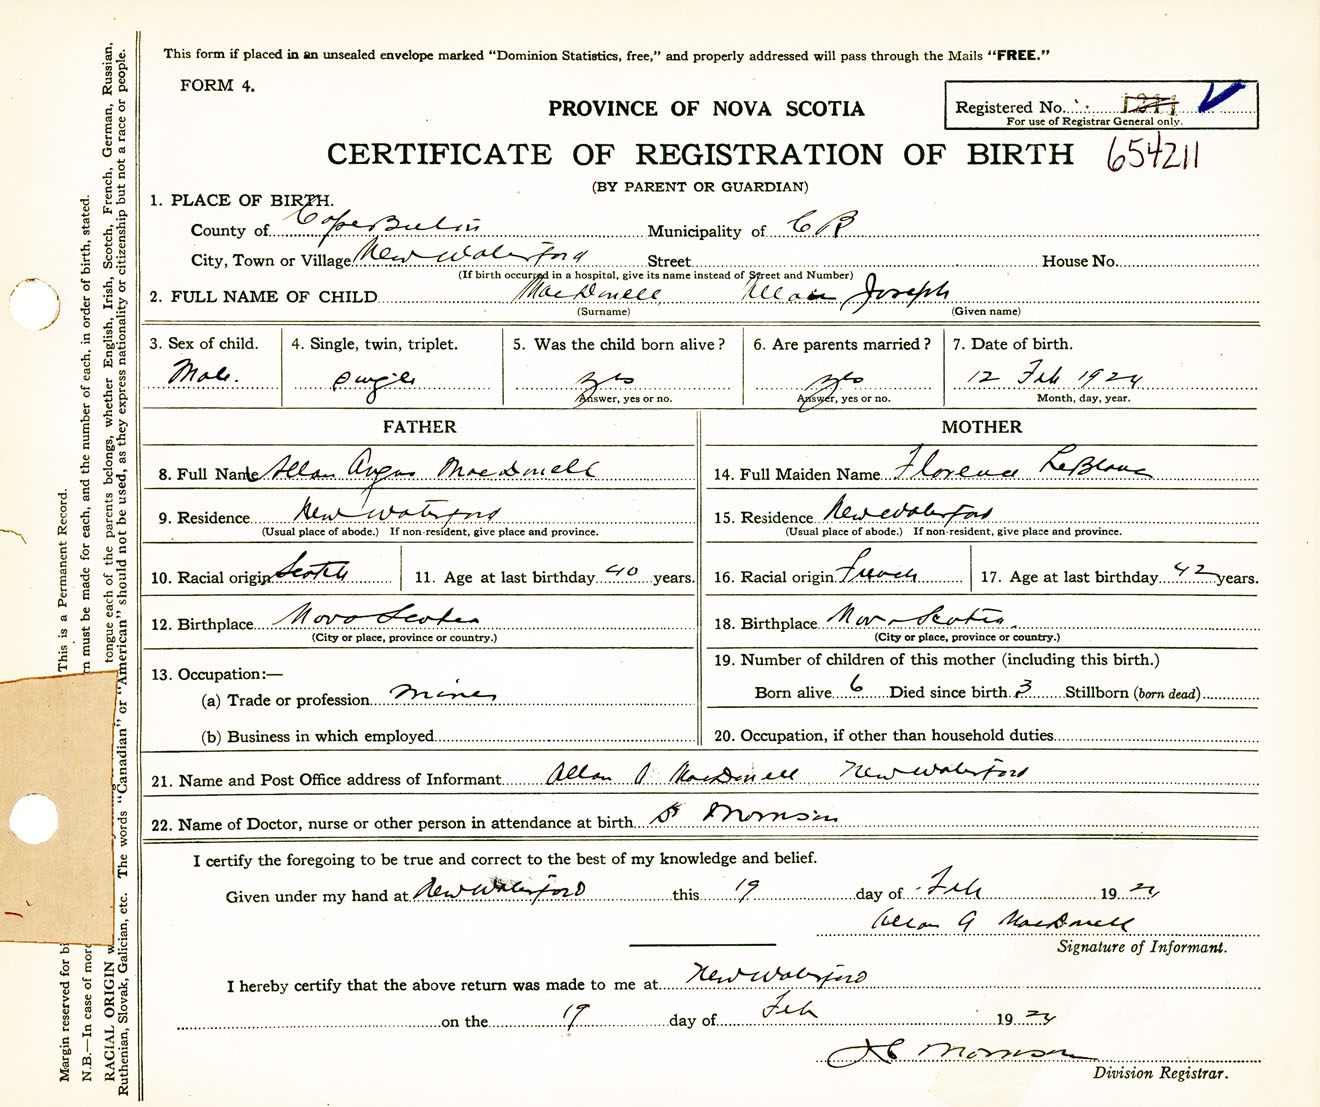 This form if placed in an unsealed envelope marked "Dominion Statistics, free," and properly addressed will pass through the Mails "FREE."
FORM 4.
PROVINCE OF NOVA SCOTIA
Registered No.
For use of Registrar General only.
CERTIFICATE OF REGISTRATION OF BIRTH 654211
(BY PARENT OR GUARDIAN)
1. PLACE OF BIRTH.
County of Cape Breton Municipality of C B
City, Town or Village New Waterford Street House No.
(If birth occurred in a hospital, give its name instead of Street and Number)
2. FULL NAME OF CHILD MacDonell Allan Joseph
(Surname) (Given name)
3. Sex of child. 4. Single, twin, triplet. 5. Was the child born alive? 6. Are parents married? 7. Date of birth.
Male. single yes yes 12 Feb 1924
Answer, yes or no. Answer, yes or no. Month, day, year.
FATHER MOTHER
8. Full Name Allan Angus MacDonell 14. Full Maiden Name Florence LeBlanc
9. Residence New Waterford 15. Residence New Waterford
(Usual place of abode.) If non-resident, give place and province. (Usual place of abode.) If non-resident, give place and province.
10. Racial origin Scotch 11. Age at last birthday 40 years. 16. Racial origin French 17. Age at last birthday 42 years.
12. Birthplace Nova Scotia 18. Birthplace Nova Scotia
(City or place, province or country.) (City or place, province or country.)
13. Occupation:— 19. Number of children of this mother (including this birth.)
(a) Trade or profession Miner Born alive 6 Died since birth 3 Stillborn (born dead)
(b) Business in which employed 20. Occupation, if other than household duties
21. Name and Post Office address of Informant Allan A MacDonell New Waterford
22. Name of Doctor, nurse or other person in attendance at birth Dr Morrison
I certify the foregoing to be true and correct to the best of my knowledge and belief.
Given under my hand at New Waterford this 19 day of Feb 1924
Allan A MacDonell
Signature of Informant.
I hereby certify that the above return was made to me at New Waterford
on the 19 day of Feb 1924
Morrison
Division Registrar.
Margin reserved for bi
This is a Permanent Record.
N.B.—In case of mor
rn must be made for each, and the number of each, in order of birth, stated.
RACIAL ORIGIN w
tongue each of the parents belongs, whether English, Irish, Scotch, French, German, Russian,
Ruthenian, Slovak, Galician, etc. The words "Canadian" or "American" should not be used, as they express nationality or citizenship but not a race or people.